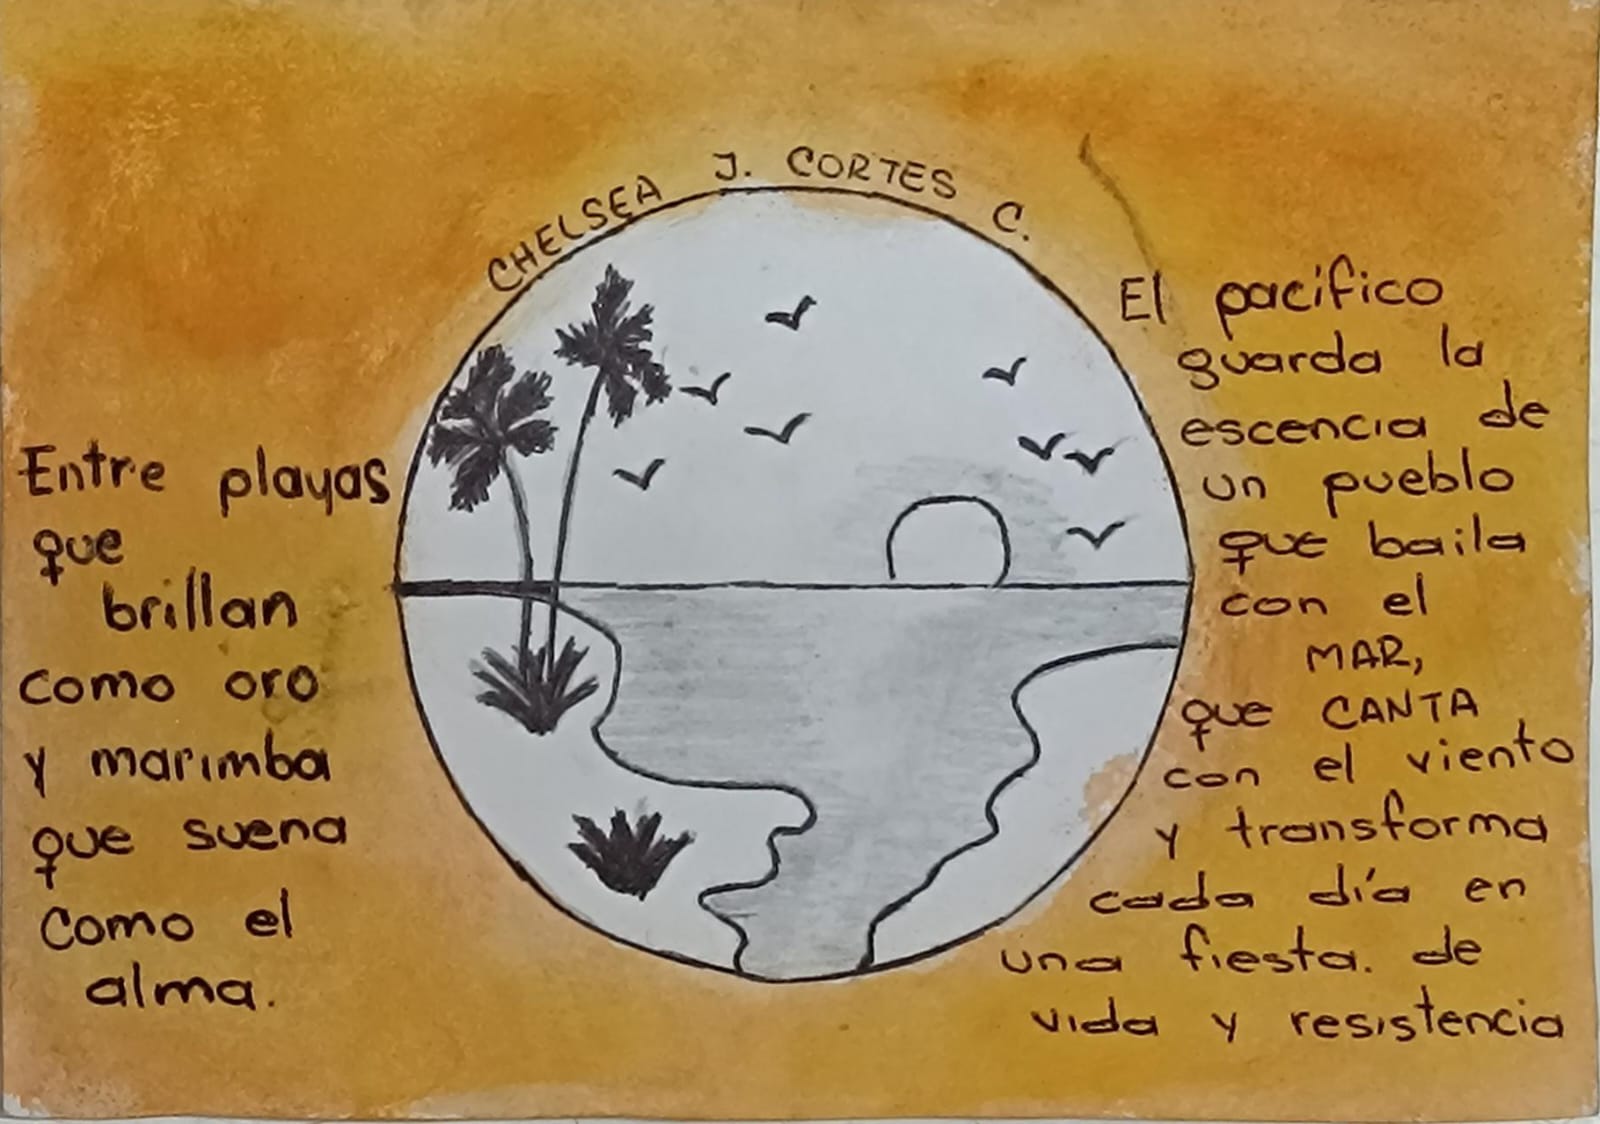 CHELSEA J. CORTES C.
Entre playas
que
brillan
como oro
y marimba
que suena
como el
alma.
El pacífico
guarda la
escencia de
un pueblo
que baila
con el
MAR,
que CANTA
con el viento
y transforma
cada día en
una fiesta. de
vida y resistencia